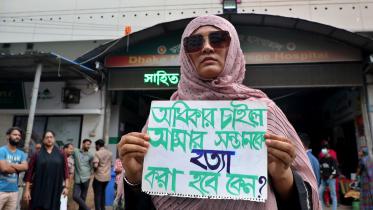 Dhaka Medical College Hospital
সাহিত
অধিকার চাইলে
আমার সন্তানকে
হত্যা
করা হবে কেন?